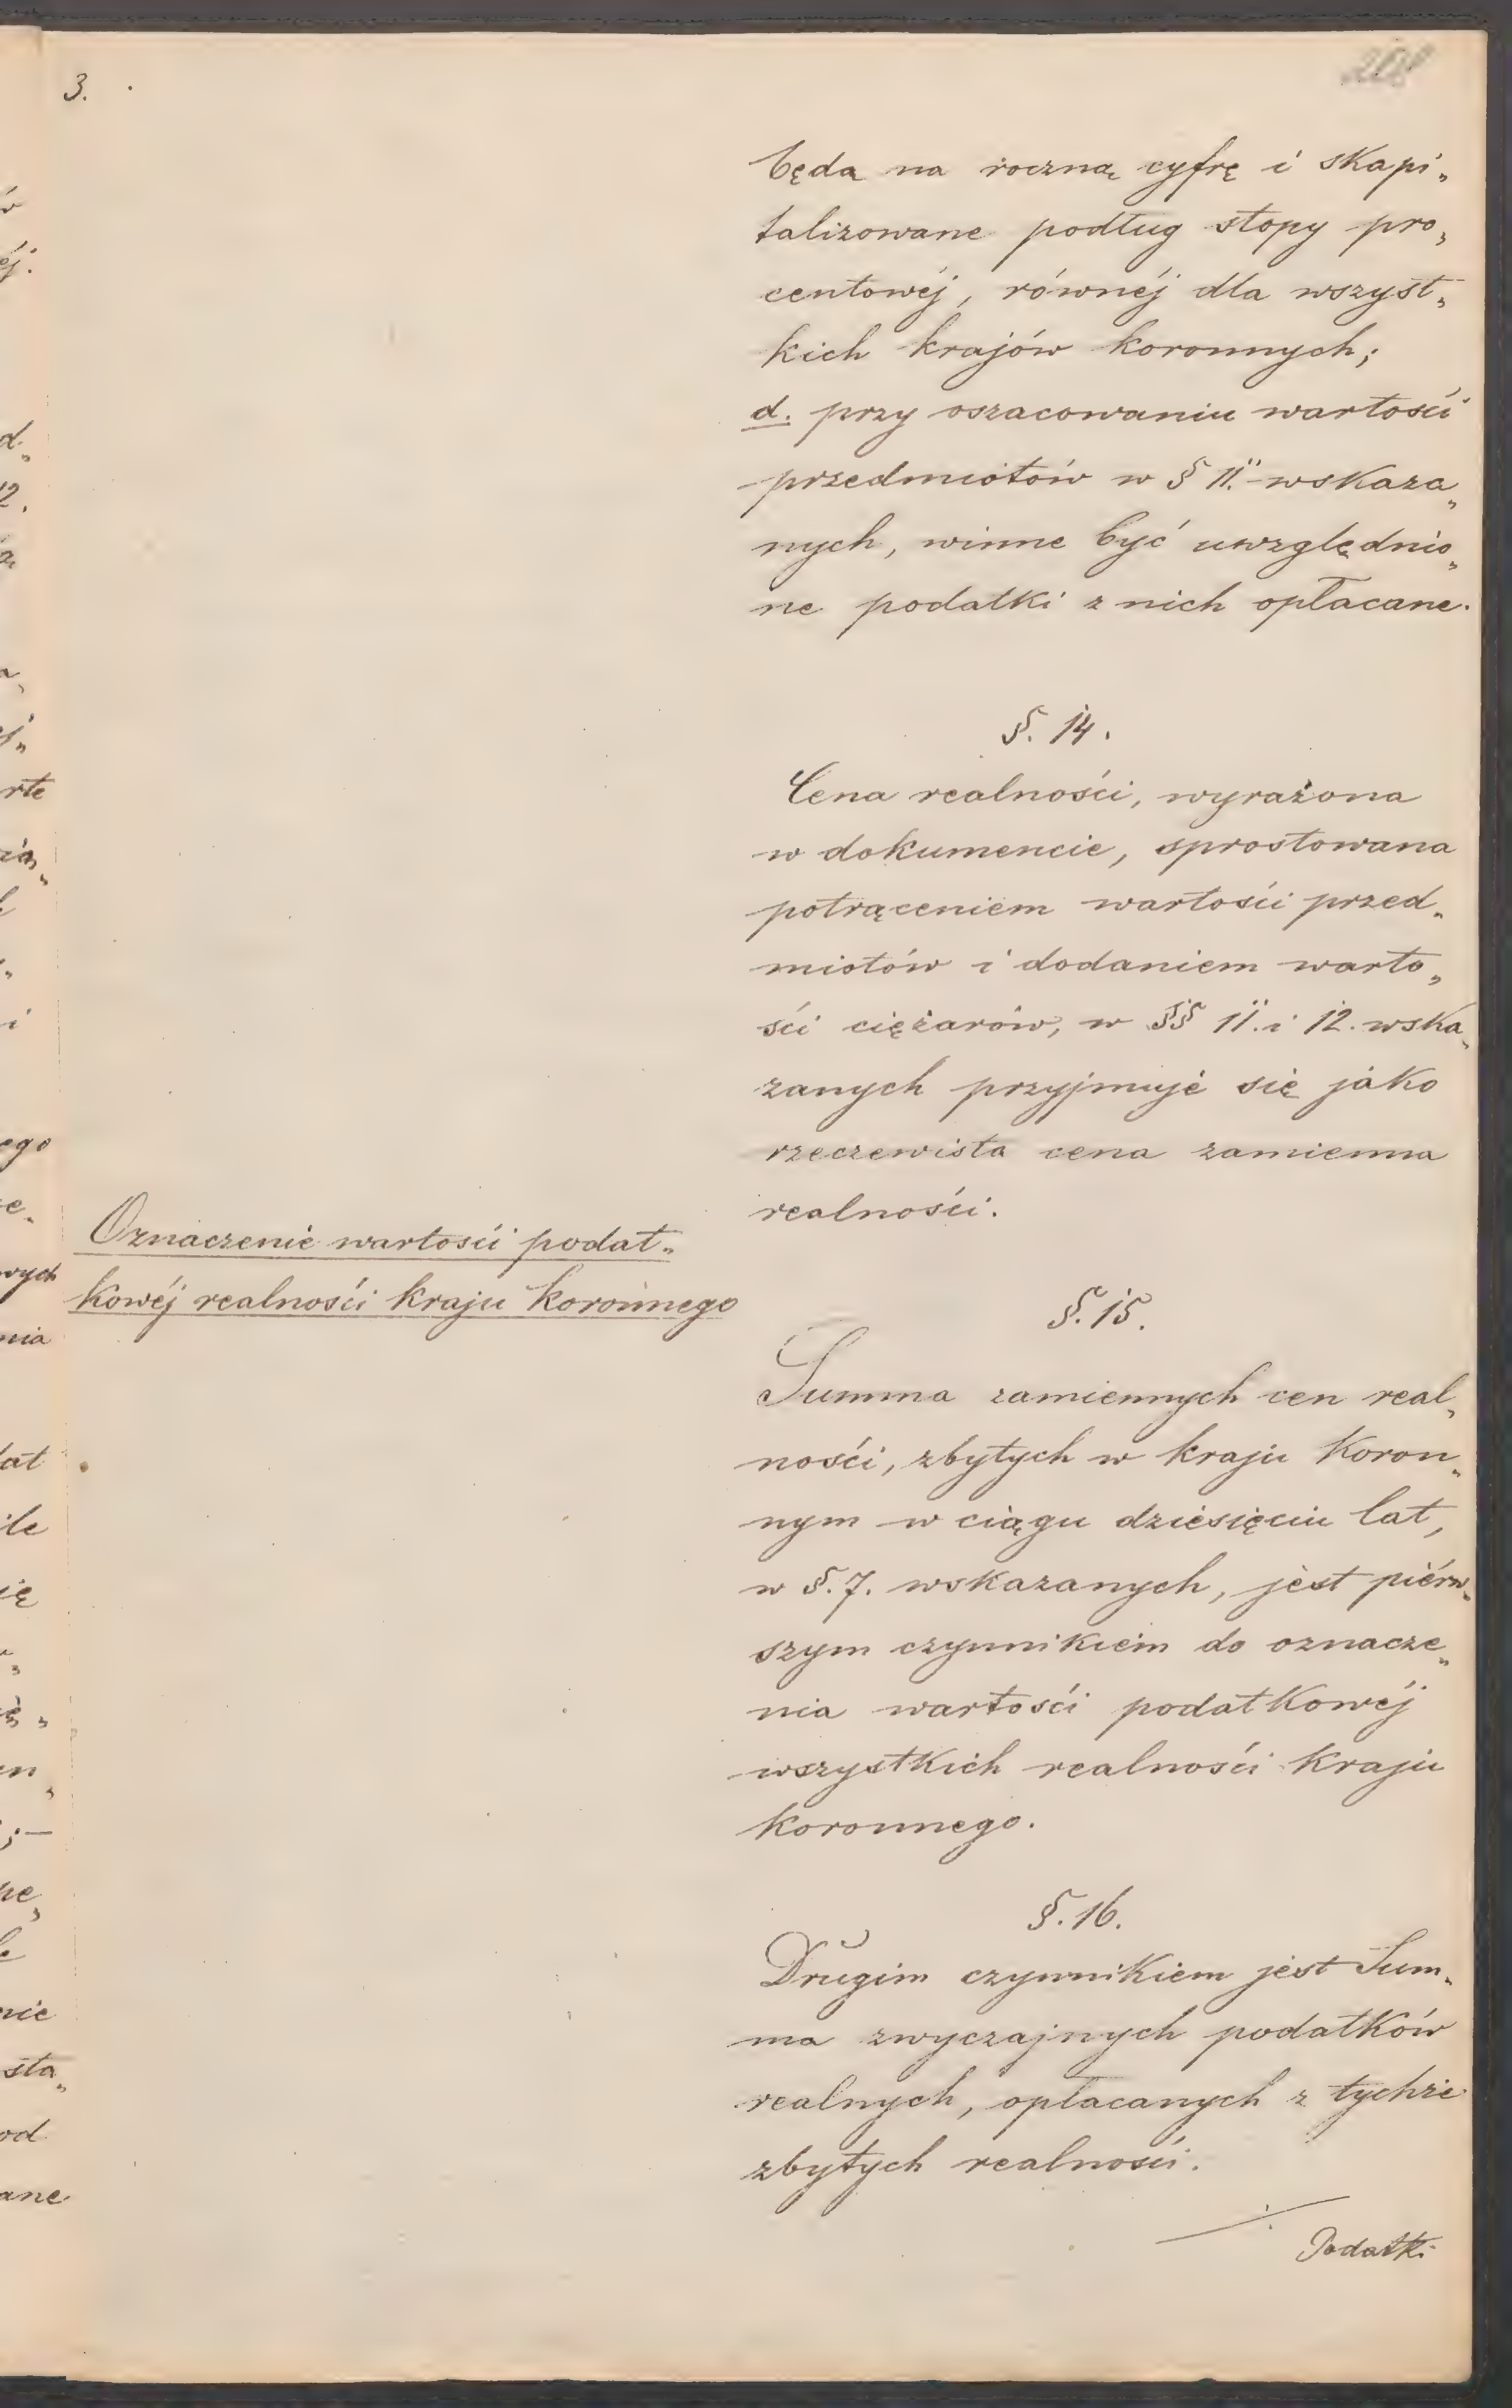 3.
będa na roczną cyfrę i skapi„
talizowane podług stopy pro„
centowéj, równéj dla wszyst„
kich krajów koronnych;
d. przy oszacowaniu wartości
przedmiotów w § 11. wskaza„
nych, winne być uwzględnio„
ne podatki z nich opłacane.
§. 14.
Cena realności, wyrażona
w dokumencie, sprostowana
potrąceniem wartości przed„
miotów i dodaniem warto„
ści ciężarów, w §§ 11. i 12. wska„
zanych przyjmuje się jako
rzeczewista cena zamienna
realności.
Oznaczenie wartości podat„
kowéj realności kraju koronnego
§. 15.
Summa zamiennych cen real„
ności, zbytych w kraju koron„
nym w ciągu dziesięciu lat,
w §. 7. wskazanych, jest piérw„
szym czynnikiem do oznacze„
nia wartości podatkowéj
wszystkich realności kraju
koronnego.
§. 16.
Drugim czynnikiem jest Sum„
ma zwyczajnych podatków
realnych, opłacanych z tychże
zbytych realności.
Podatki